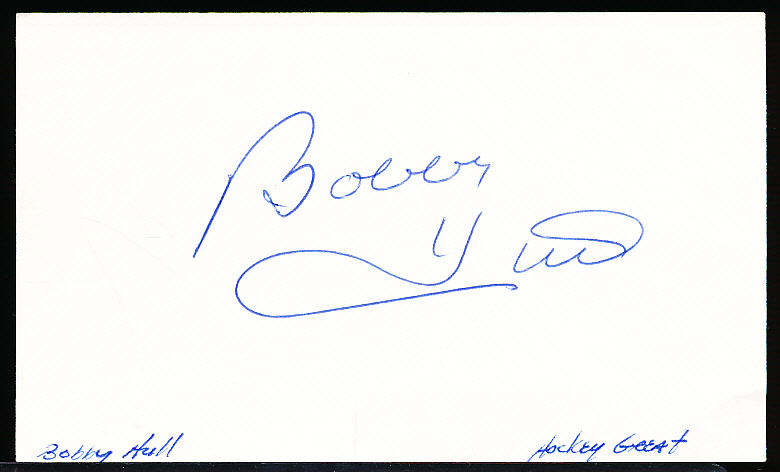 Bobby
Hull
Bobby Hull
Hockey Great